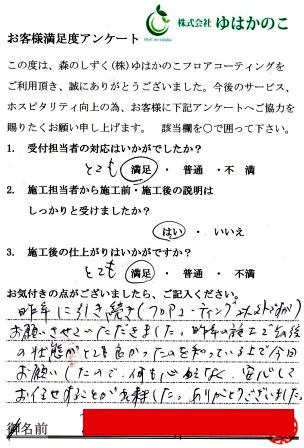 株式会社 ゆはかのこ
お客様満足度アンケート
この度は、森のしずく(株)ゆはかのこフロアコーティングを
ご利用頂き、誠にありがとうございました。今後のサービス、
ホスピタリティ向上の為、お客様に下記アンケートへご協力を
賜りたくお願い申し上げます。 該当欄を○で囲って下さい。
1. 受付担当者の対応はいかがでしたか？
とても 満足 ・ 普通 ・ 不満
2. 施工担当者から施工前・施工後の説明は
しっかりと受けましたか？
はい ・ いいえ
3. 施工後の仕上がりはいかがですか？
とても 満足 ・ 普通 ・ 不満
お気付きの点がございましたら、ご記入ください。
昨年に引き続き(フロアコーティング
お願いさせていただきました。昨年の施工で
の状態がとても良かったのを知っているので今回
お願いしたので、何も心配なく、安心して
お任せすることが出来ました。ありがとうございました
御名前